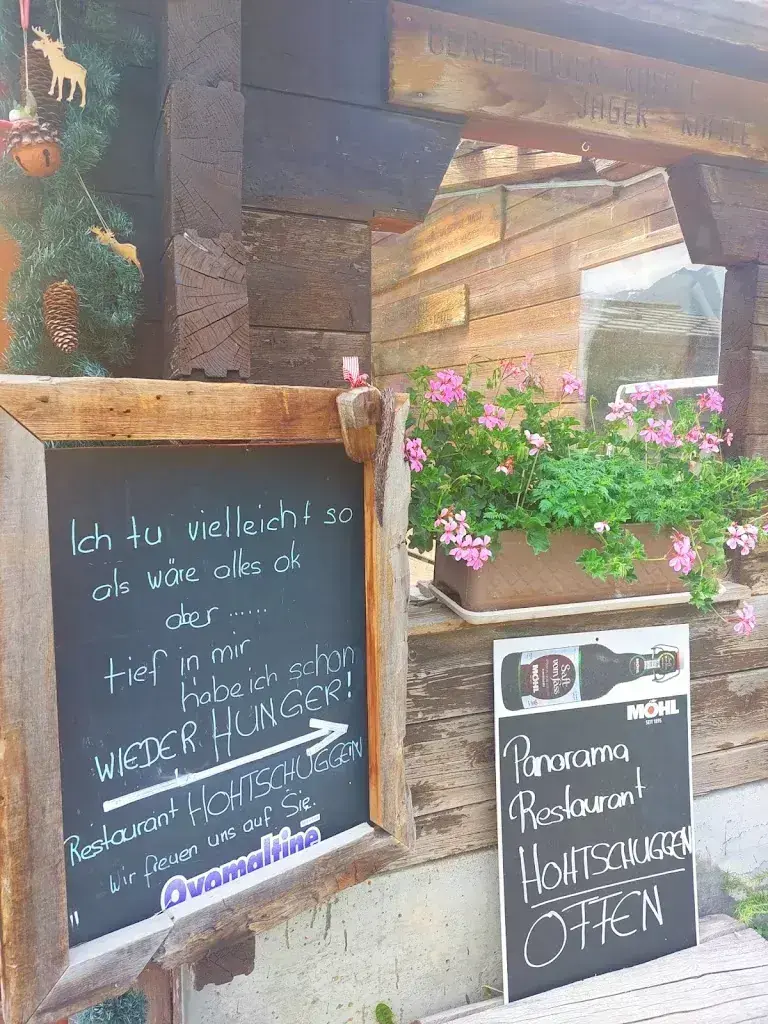 JÄGER
Ich tu vielleicht so
als wäre alles ok
aber ......
tief in mir
habe ich schon
WIEDER HUNGER!
Restaurant HOHTSCHUGGEN
wir freuen uns auf Sie.
Ovomaltine
Saft
vom Fass
MÖHL
MÖHL
SEIT 1895
Panorama
Restaurant
HOHTSCHUGGEN
OFFEN